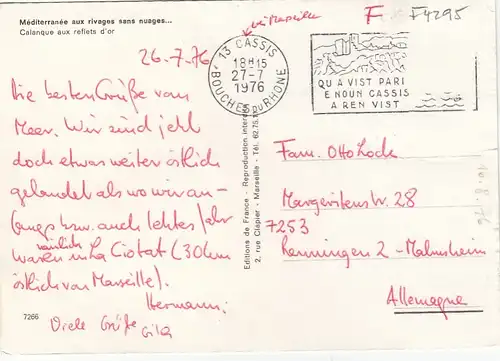 Méditerranée aux rivages sans nuages...
Calanque aux reflets d'or
26-7.76
Die besten Grüße vom
Meer. Wir sind jetzt
doch etwas weiter östlich
gelandet als wo wir an-
fangs bzw. auch letztes Jahr
waren nämlich La Ciotat (30 km
östlich von Marseille).
Hermann
Viele Grüße
7266
Editions de France - Reproduction interdite
2, rue Clapier - Marseille - Tél. 62.75.
bei Marseille
13 CASSIS
18H15
27-7
1976
BOUCHES DU RHONE
F
F4295
QU A VIST PARI
E NOUN CASSIS
A REN VIST
Fam. Otto Lock
Margeritenstr. 28
7253
Renningen 2 - Malmsheim
Allemagne
10.8.76